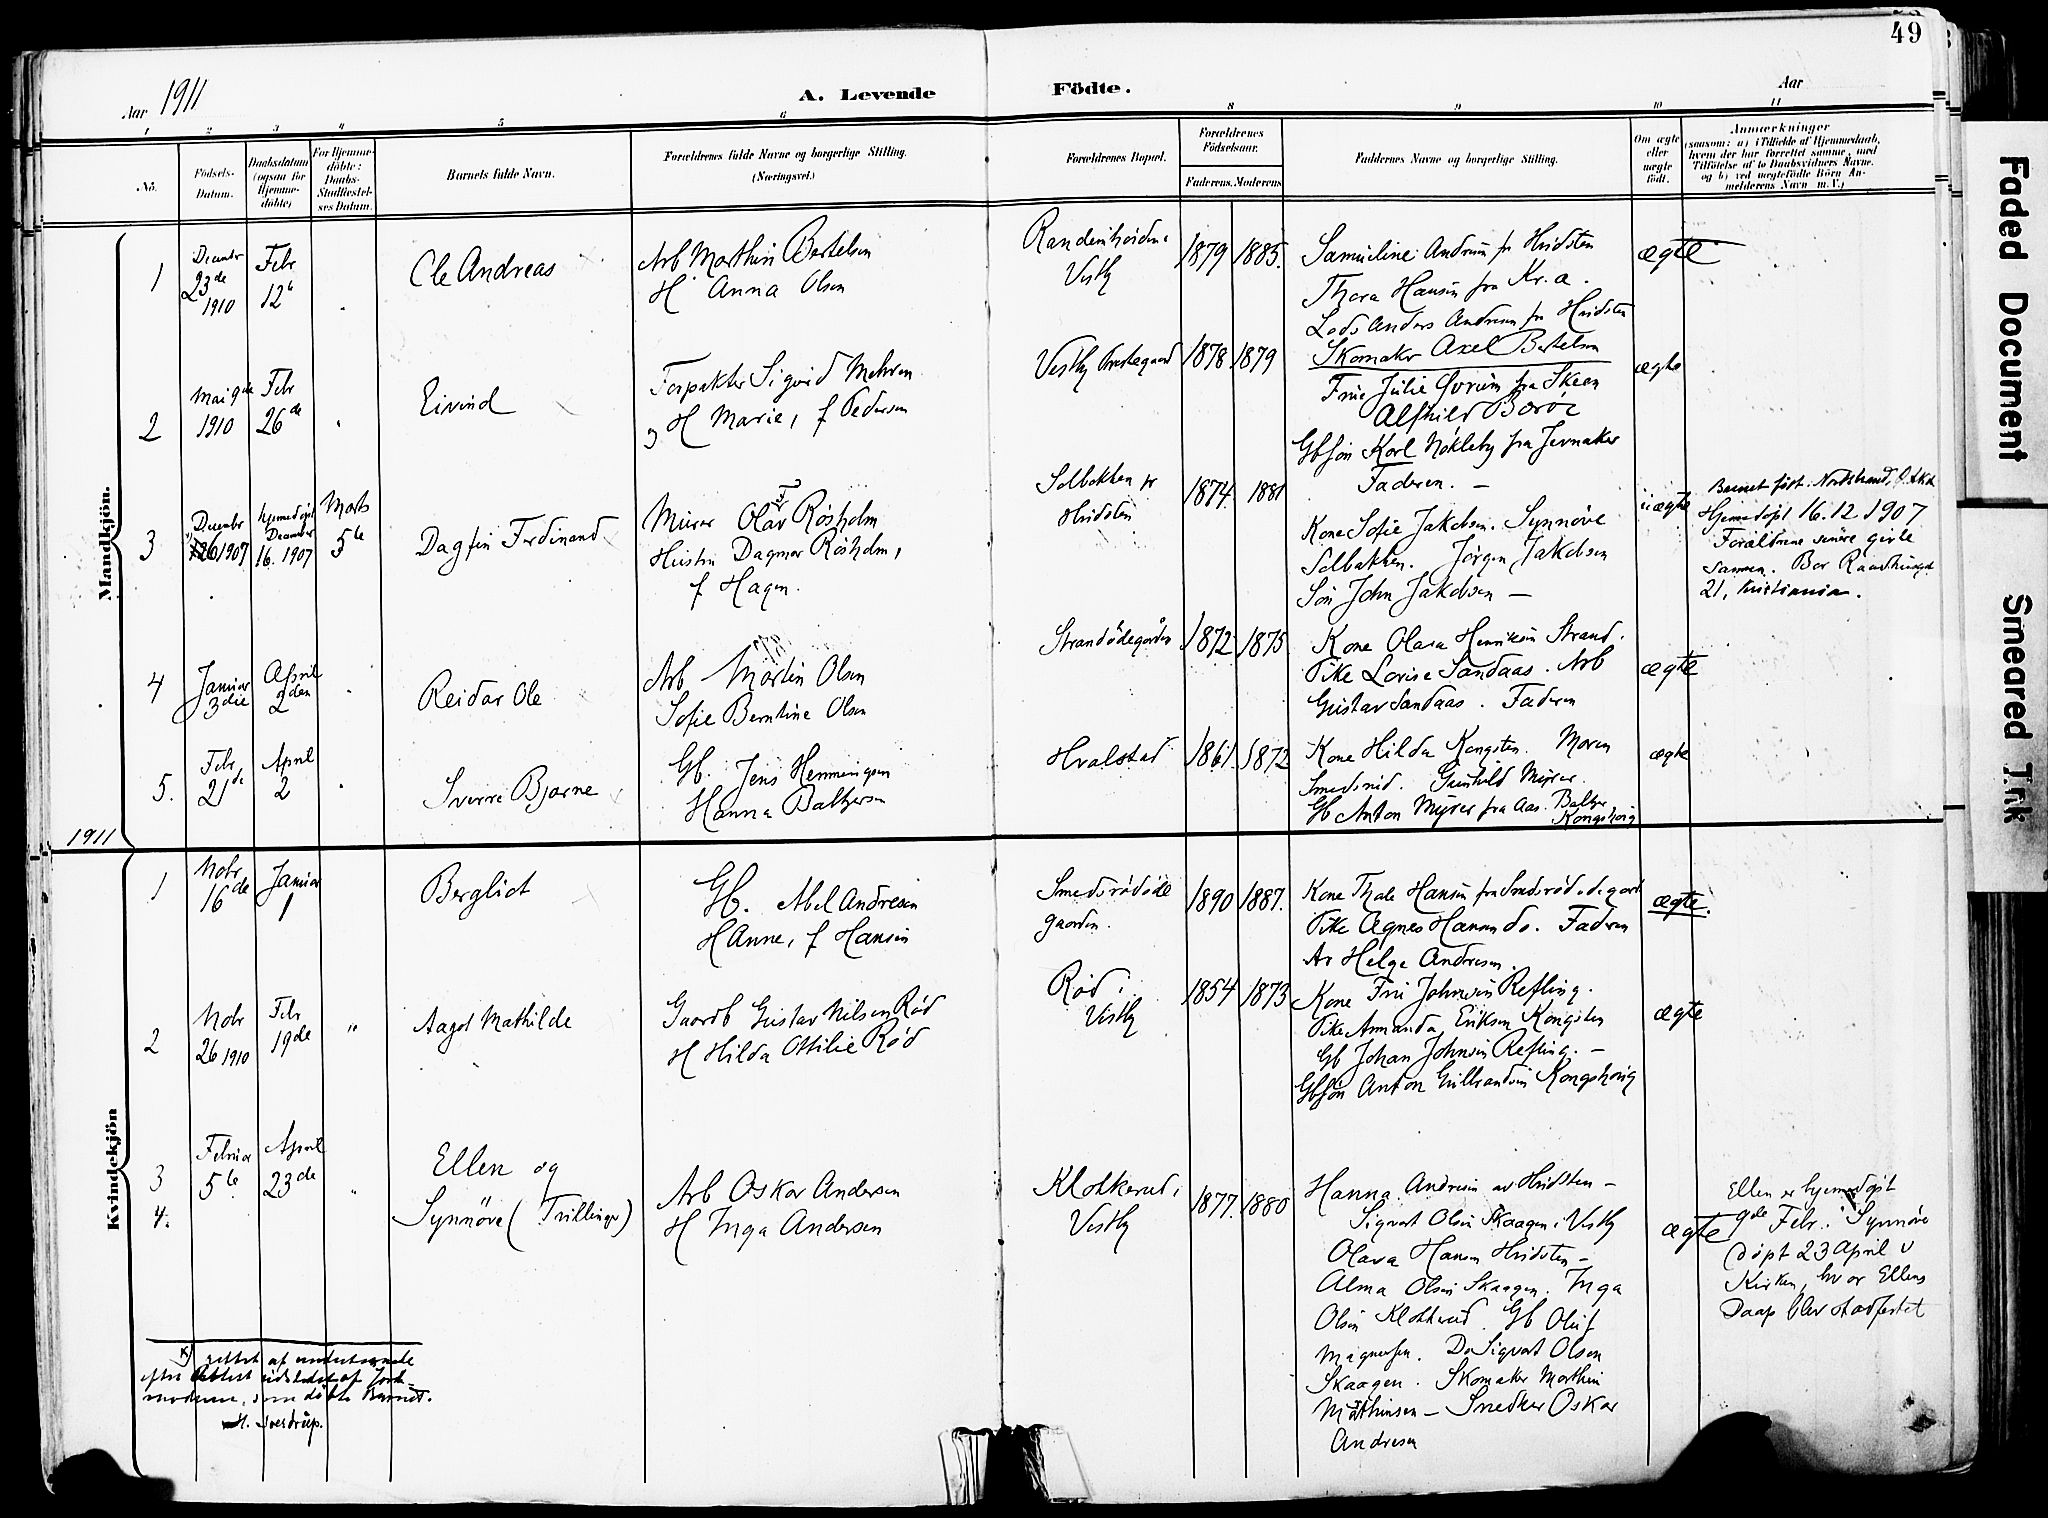 49
Aar 1911
A. Levende Födte.
Aar
1 2 3 4 5 6 8 9 10 11
No.
Födsels-Datum.
Daabsdatum (ogsaa for Hjemme-döbte)
For Hjemme-döbte: Daabs-Stadfæstel-ses Datum.
Barnets fulde Navn.
Forældrenes fulde Navne og borgerlige Stilling. (Næringsvei.)
Forældrenes Bopæl.
Forældrenes Födselsaar.
Faderens. Moderens
Faddernes Navne og borgerlige Stilling.
Om ægte eller uægte födt.
Anmærkninger
(saasom: a) i Tilfælde af Hjemmedaab, hvem der har forrettet samme, med Tilföielse af to Daabsvidners Navne. og b) ved uægtefödte Börn An-melderens Navn m. V.)
Mandkjön.
1
Decembr 23de 1910
Febr 12te
Ole Andreas
Arb Marthin Bertelsen
H Anna Olsen
Vestby
1879 1885.
Samueline Andresen fra Hvidsten
Thora Hansen fra Kr.a.
Lods Anders Andresen fra Hvidsten
Skomaker Axel Bertelsen
ægte
2
Mai 9de 1910
Febr 26de
Eivind
Forpakter Sigurd Mehren
og H Marie, f Pedersen
Vestby Prestegaard
1878. 1879
Frue Julie fra Skeen
Alfhild Bærøe
Gbsøn Karl Nøkleby fra Jevnaker
Faderen. —
ægte
3
Decembr 1907
hjemmedøpt December 16. 1907
Marts 5te
Dagfin Ferdinand
Murer Olav F Røsholm
Hustru Dagmar Røsholm,
f Hagen.
Solbakken pr Hvidsten
1874. 1881
Kone Sofie Jakobsen. Synnøve
Solbakken. Jørgen Jakobsen
Søn John Jakobsen —
uægte
Barnet født i Nordstrand, Ø. Aker
Hjemmedøpt 16.12.1907
Forældrene senere givte
sammen. Bor Raadhusgt.
21, Kristiania.
4
Januar 3die
April 2den
Reidar Ole
Arb Martin Olsen
Sofie Berntine Olsen
Strandødegaarden
1872. 1875
Kone Olava Henriksen Strand.
Pike Lovise Sandaas. Arb
Gustav Sandaas. Faderen
ægte
5.
Febr 21de
April 2
Sverre Bjarne
Gb. Jens Hemmingsen
Hanna Baltzersen
Hvalstad
1861. 1872
Kone Hilda Kongsten. Maren
Smedsrud. Gunhild Myrer.
Gb Anton Myrer fra Aas. Baltzer Kongshavig
ægte
1911
Kvindekjön
1
Nobr 16de
Januar 1
Bergliot
Gb. Abel Andresen
H Anne, f Hansen
Smedsrødødegaarden.
1890 1887.
Kone Thale Hansen fra Smedsrødødegaard
Pike Agnes Hansen do. Faderen
Av Helge Andresen.
ægte.
2
Nobr 26 1910
Febr 19de
"
Aagot Mathilde
Gaardb Gustav Nilsen Rød
H Hilda Ottilie Rød
Rød i Vestby
1854 1873
Kone Fru Johnsen Refling.
Pike Amanda Eriksen Kongsten
Gb Johan Johnsen Refling. —
Gbsøn Anton Gulbrandsen Kongshavig
ægte
3
4.
Februar 5te
April 23de
Ellen og
Synnøve (Tvillinger)
Arb Oskar Andersen
H Inga Andersen
Klokkerud i Vestby
1877. 1880
Hanna Andresen av Hvidsten —
Sigvart Olsen Skaagen i Vestby
Olava Hansen Hvidsten —
Alma Olsen Skaagen. Inga
Olsen Klokkerud. Gb Oluf
Magnussen. Do Sigvart Olsen
Skaagen. Skomaker Marthin
Mathinsen — Snedker Oskar
Andresen
ægte
Ellen er hjemmedøpt
9de Febr. Synnøve
døpt 23 April i
Kirken, hvor Ellens
Daap blev stadfestet
x) rettet af undertegnede
efter Attest udstedt af Jord-
moderen, som døbte Barnet.
H. Sverdrup.
Faded Document
Smeared Ink